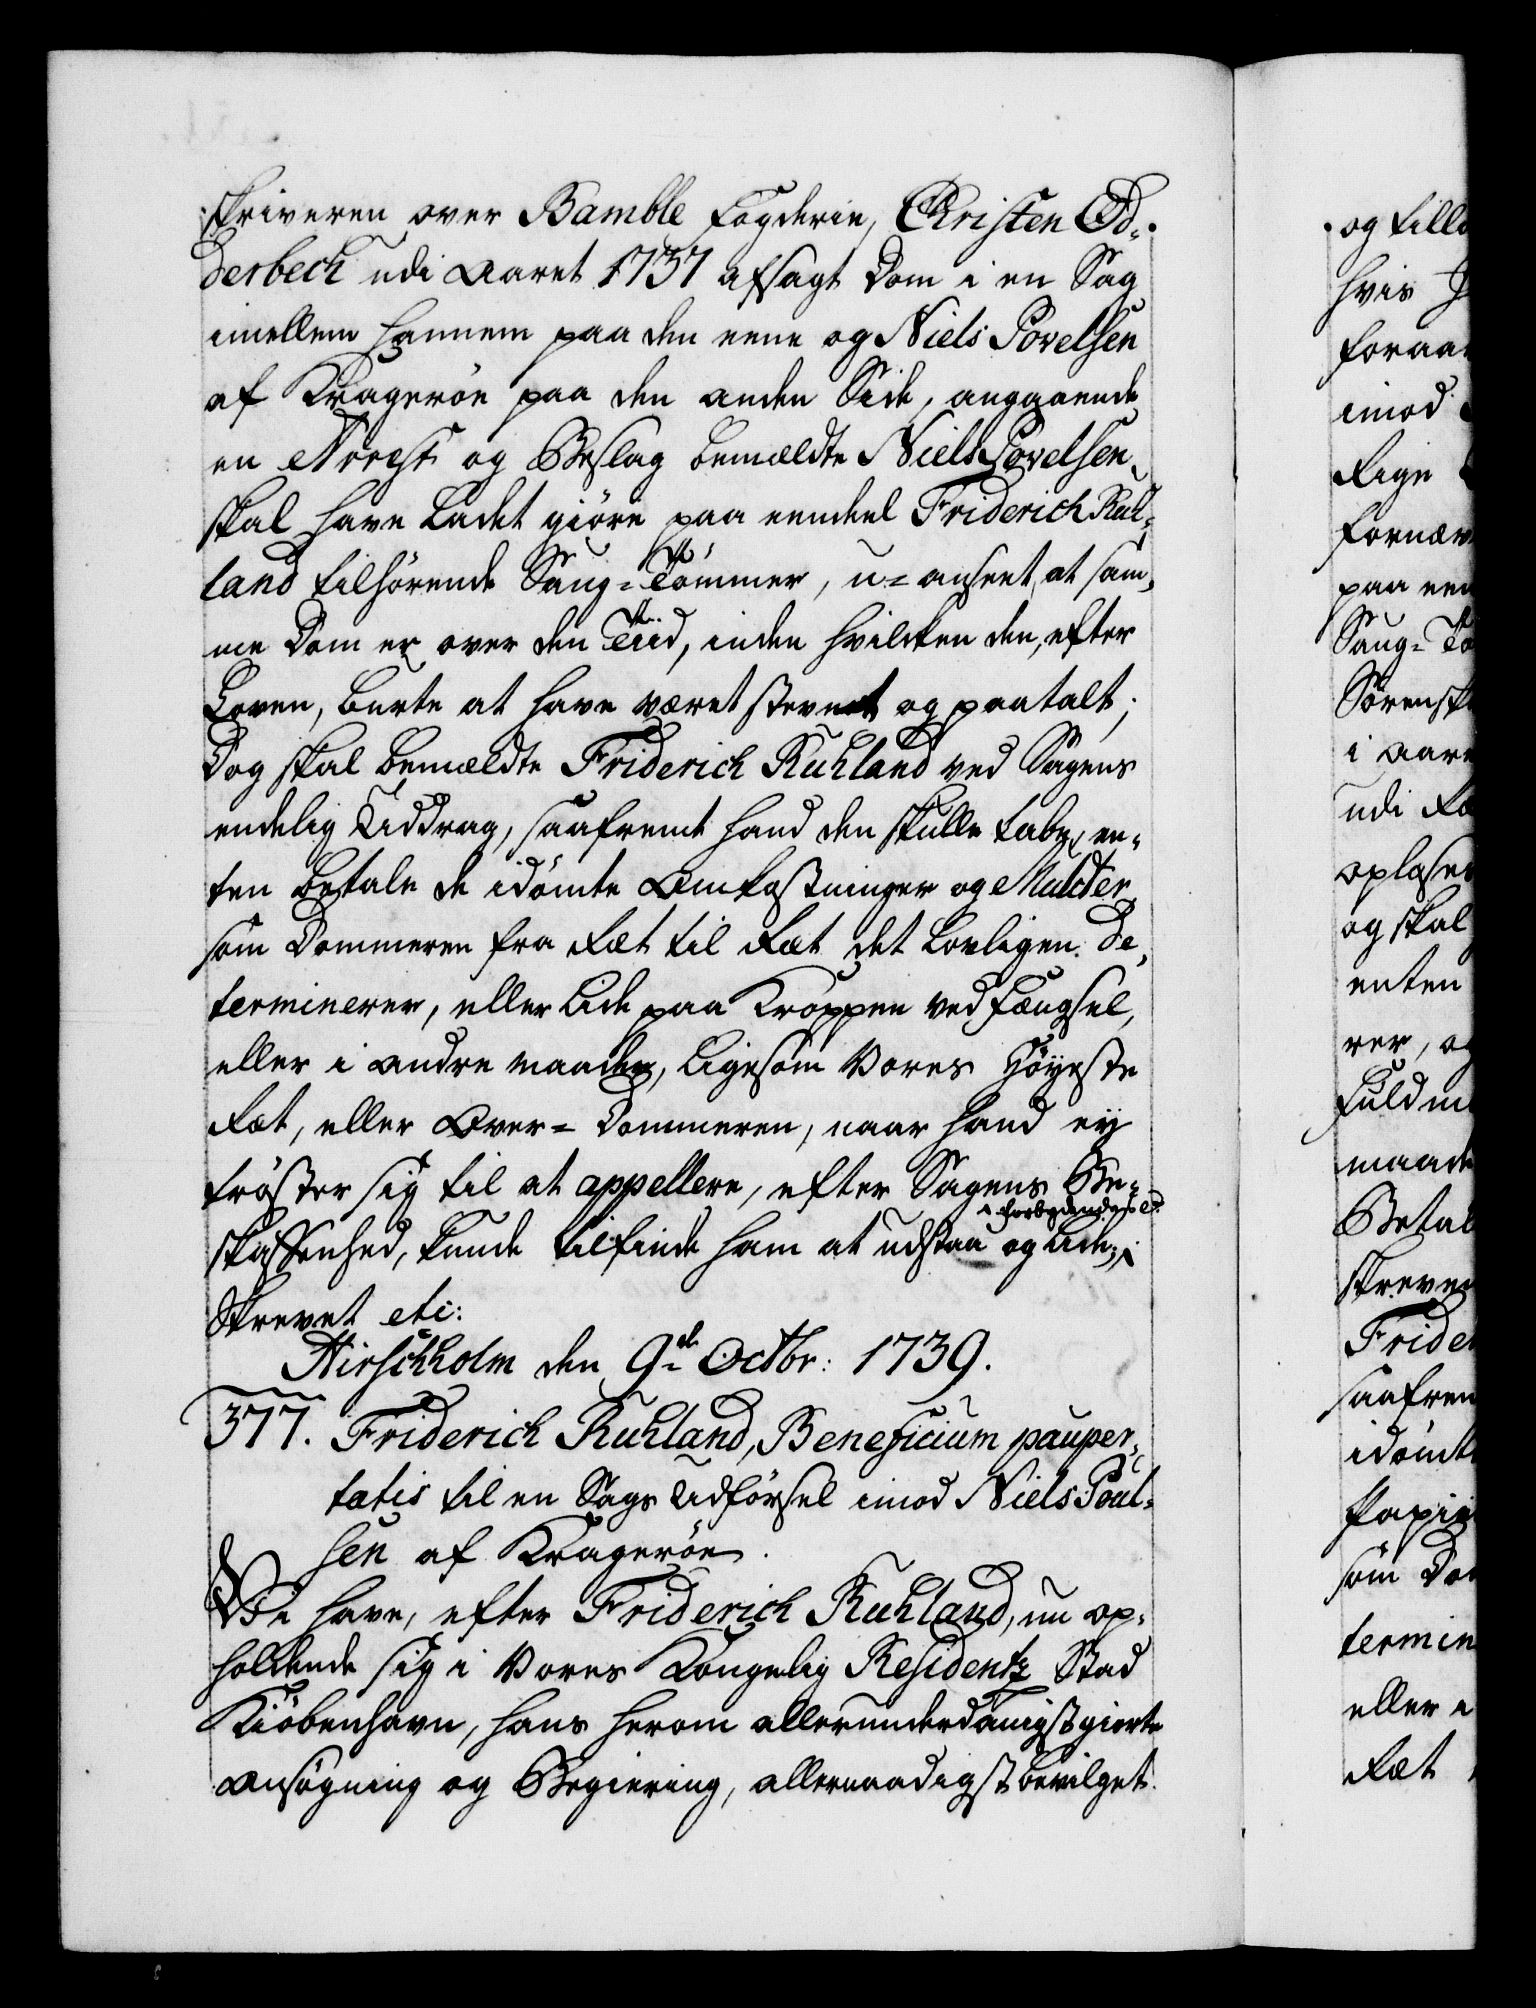 skriveren over Bamble Fogderie, Christen Od-
derbech udi Aaret 1737 afsagt Dom i en Sag
imellem hannem paa den eene og Niels Povelsen
af Krageröe paa den anden Side, angaaende
en Arrest og Beslag bemældte Niels Povelsen
skal have ladet giöre paa eendeel Friderich Ruh-
land tilhörende Saug-Tömmer, u-anseet, at sam-
me Dom er over den Tiid, inden hvilcken den, efter
Loven, burte at have været stevnet og paatalt;
Dog skal bemældte Friderich Ruhland ved Sagens
endelig Uddrag, saafremt hand den skulle tabe, en-
ten betale de idömte Omkostninger og Mulcter
som Dommeren fra Ræt til Ræt det lovligen De-
terminerer, eller Lide paa Kroppen ved Fængsel,
eller i andre maader, ligesom Vores Höyeste
Ræt, eller Over-Dommeren, naar hand ey
tröster sig til at appellere, efter Sagens Be-
skaffenhed, kunde tilfinde ham at udstaa og Lide;
Forbydendes etc.
Skrevet etc:
Hirschholm den 9de Octbr: 1739.
377. Friderich Ruhland, Beneficium pauper-
tatis til en Sags Udförsel imod Niels Poul-
sen af Krageröe.
Vi have, efter Friderich Ruhland, nu op-
holdende sig i Vores Kongelig Residentz Stad
Kiöbenhavn, hans herom allerunderdanigst giorte
Ansögning og Begiering, allernaadigst bevilget
og till
hvis
foraa
imod
Rige
fornæv
paa een
Saug-Tö
Sörensk
i aar
udi Ræ
oplæse
og skal
enten
rer, og
Fuldm
maade
Betal
skreven
Frider
saafrem
idömt
Papii
som Do
termin
eller i
Ræt